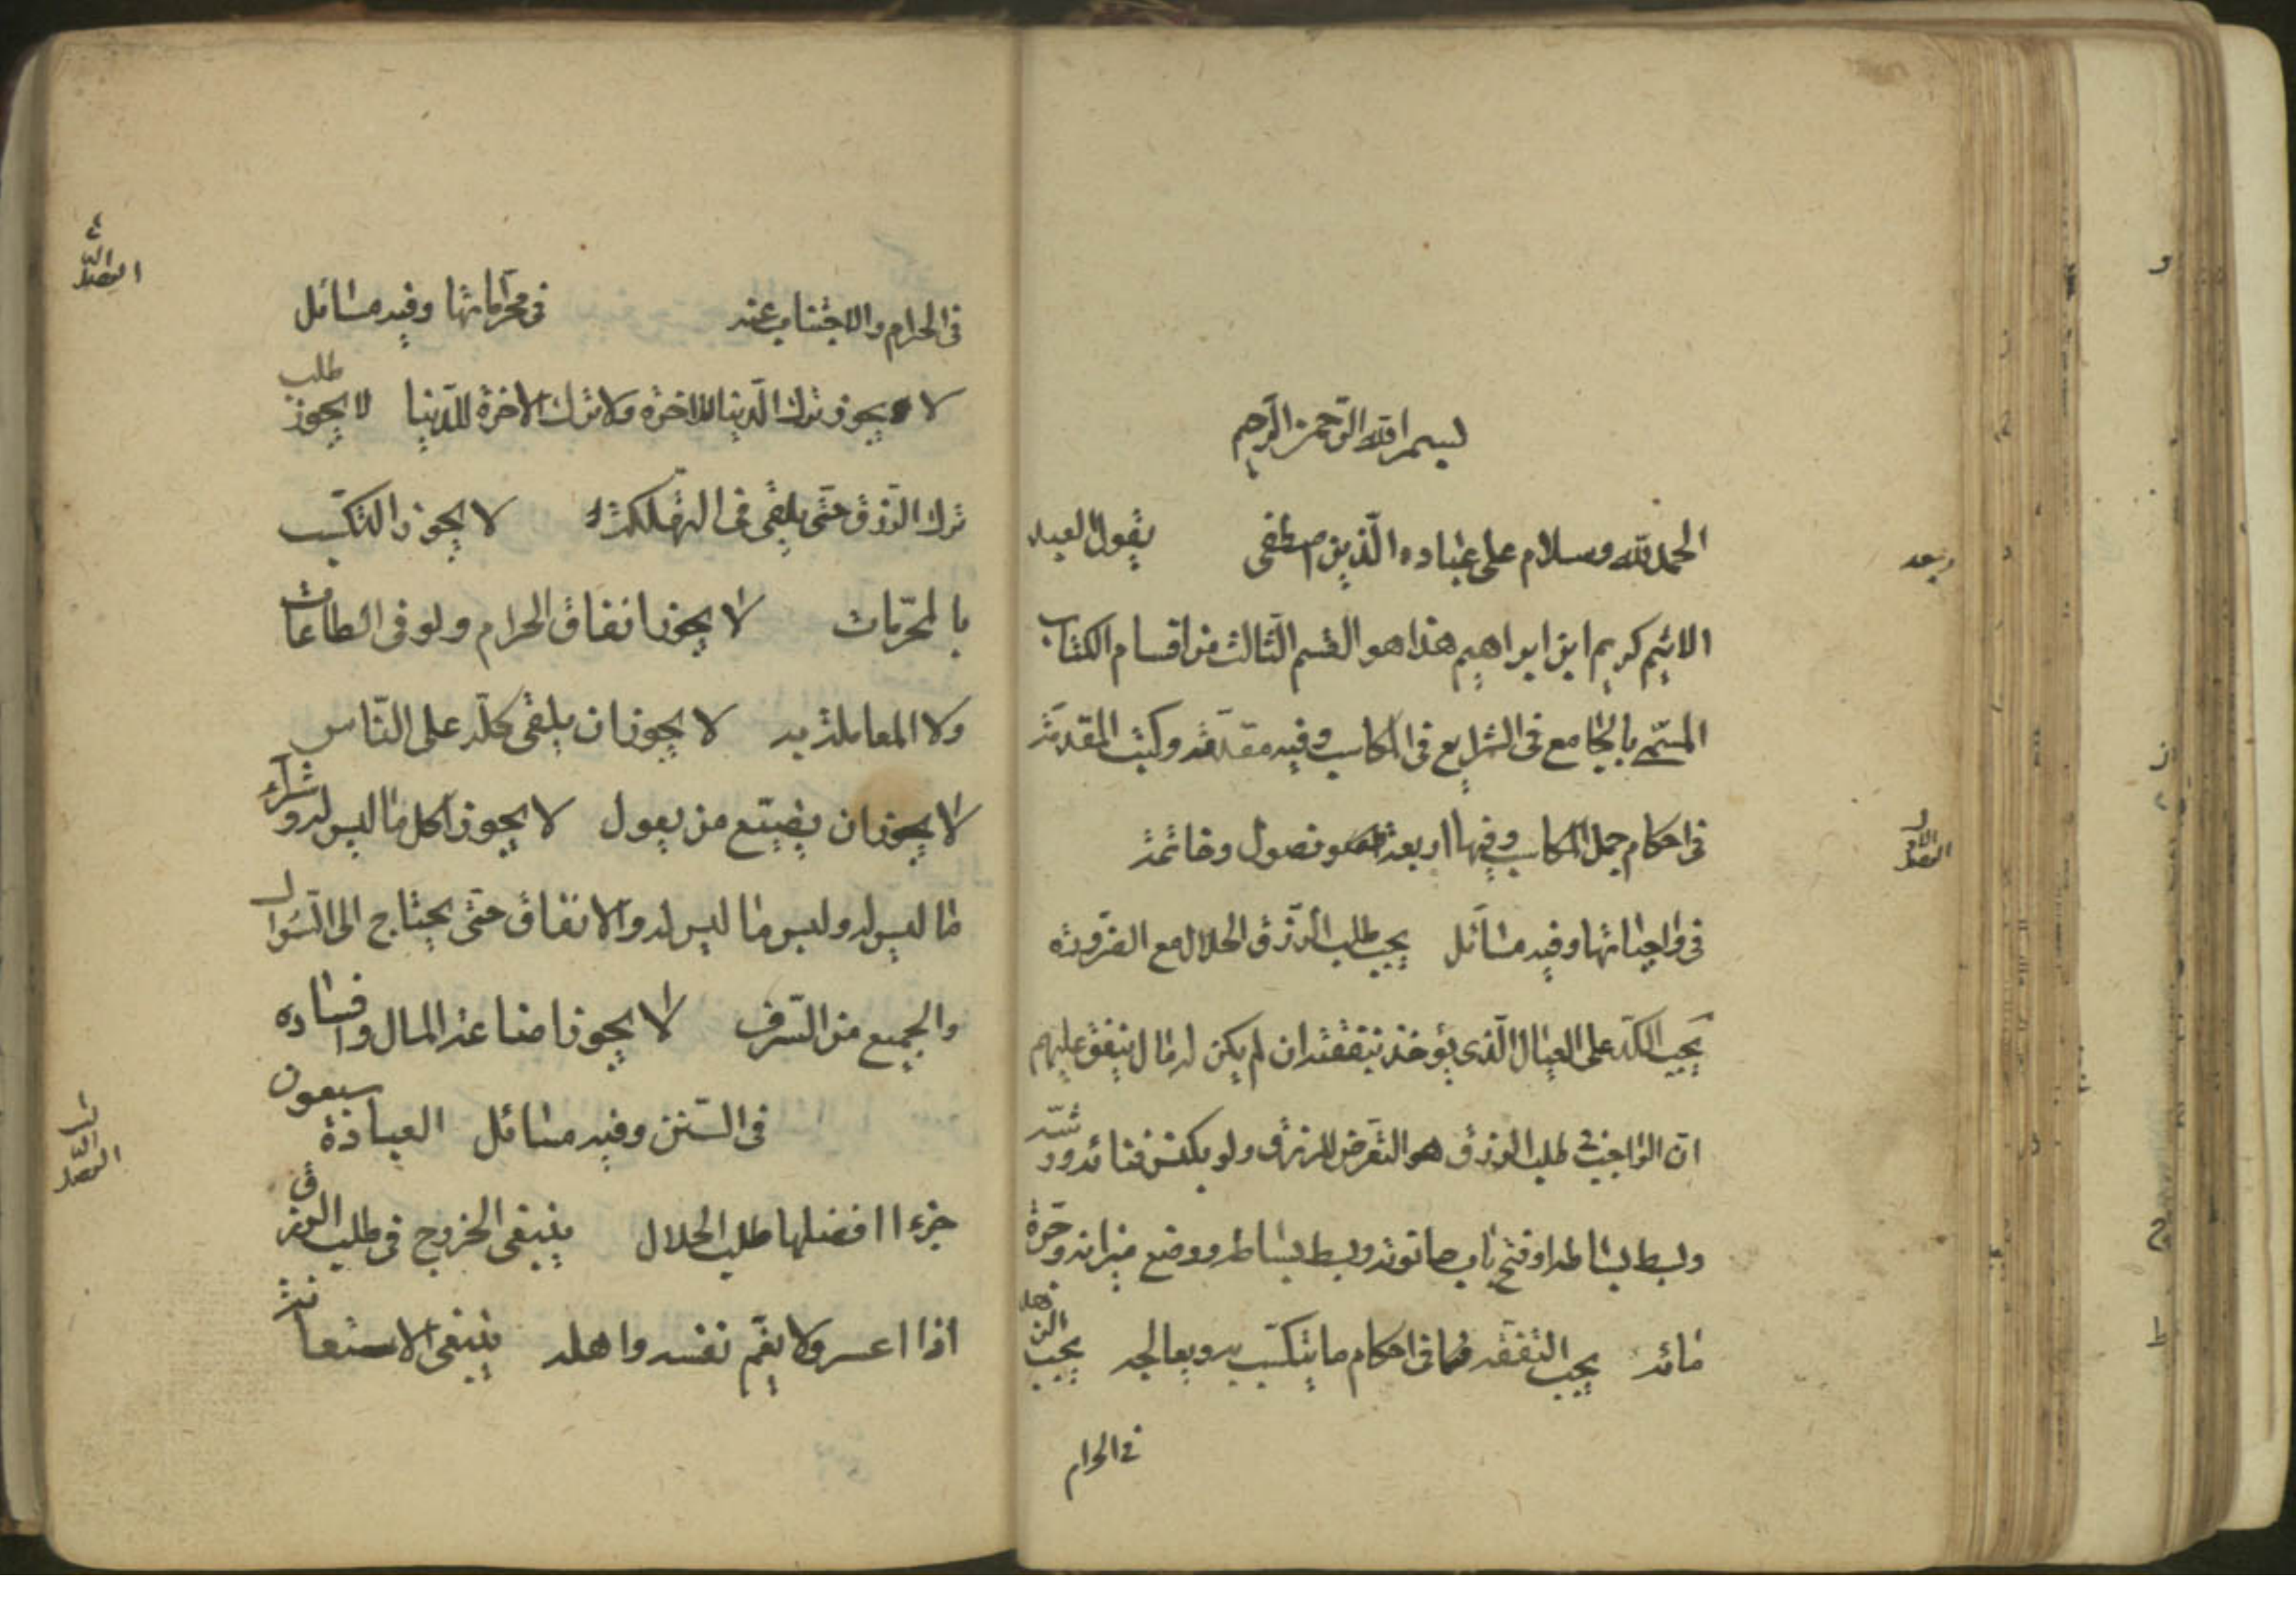 بسم الله الرّحمن الرّحیم
وبعد
الحمد لله وسلام علی عباده الّذین اصطفی یقول العبد
الاثیم کریم ابن ابراهیم هذا هو القسم الثّالث من اقسام الکتاب
المسمّی بالجامع فی الشرایع فی المکاسب وفیه مقدّمة وکتب المقدّمة
فی احکام جمل المکاسب وفیها اربعة فصول وخاتمة
الفصل الاول
فی واجباتها وفیه مسائل یجب طلب الرّزق الحلال مع الضّرورة
یجب الکدّ علی العیال الّذی یؤخذ بنفقته ان لم یکن له مال ینفق علیهم
انّ الواجب فی طلب الرزق هو التّعرّض للرزق ولو بکنس فنائه ورشّه
وبسط بساطه او فتح باب حانوته وبسط بساطه ووضع میزانه وجرّة
مائه یجب التّفقّه فی احکام ما یتکسّب به ویعالجه یجب الزهد
فی الحرام
فی الحرام والاجتناب عنه فی محرّماتها وفیه مسائل
لا یجوز ترك الدّنیا للاخرة ولا ترك الاخرة للدّنیا لا یجوز
طلب
ترك الرّزق حتّی یلقی فی التهلکة لا یجوز التکسّب
بالمحرّمات لا یجوز انفاق الحرام ولو فی الطاعات
ولا المعاملة به لا یجوز ان یلقی کلّه علی النّاس
لا یجوز ان یضیّع من یعول لا یجوز اکل ما لیس له وشراء
ما لیس له ولبس ما لیس له والانفاق حتّی یحتاج الی السّؤال
والجمیع من السّرف لا یجوز اضاعة المال وافساده
فی السّنن وفیه مسائل العبادة سبعون
جزءا افضلها طلب الحلال ینبغی الخروج فی طلب الرزق
اذا اعسر ولا یغمّ نفسه واهله ینبغی الاستعانة